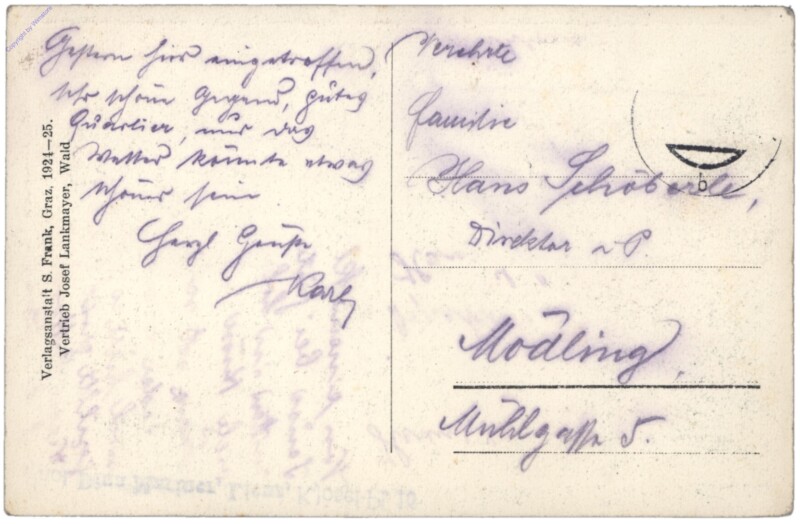 Gestern hier eingetroffen,
sehr schöne Gegend, gutes
Quartier, nur das
Wetter könnte etwas
schöner sein
Herzl Grüße
Karl
Verehrte
Familie
Hans Schöberle,
Direktor i. P.
Mödling,
Mühlgasse 5.
Verlagsanstalt S. Frank, Graz, 1924—25.
Vertrieb Josef Lankmayer, Wald
b